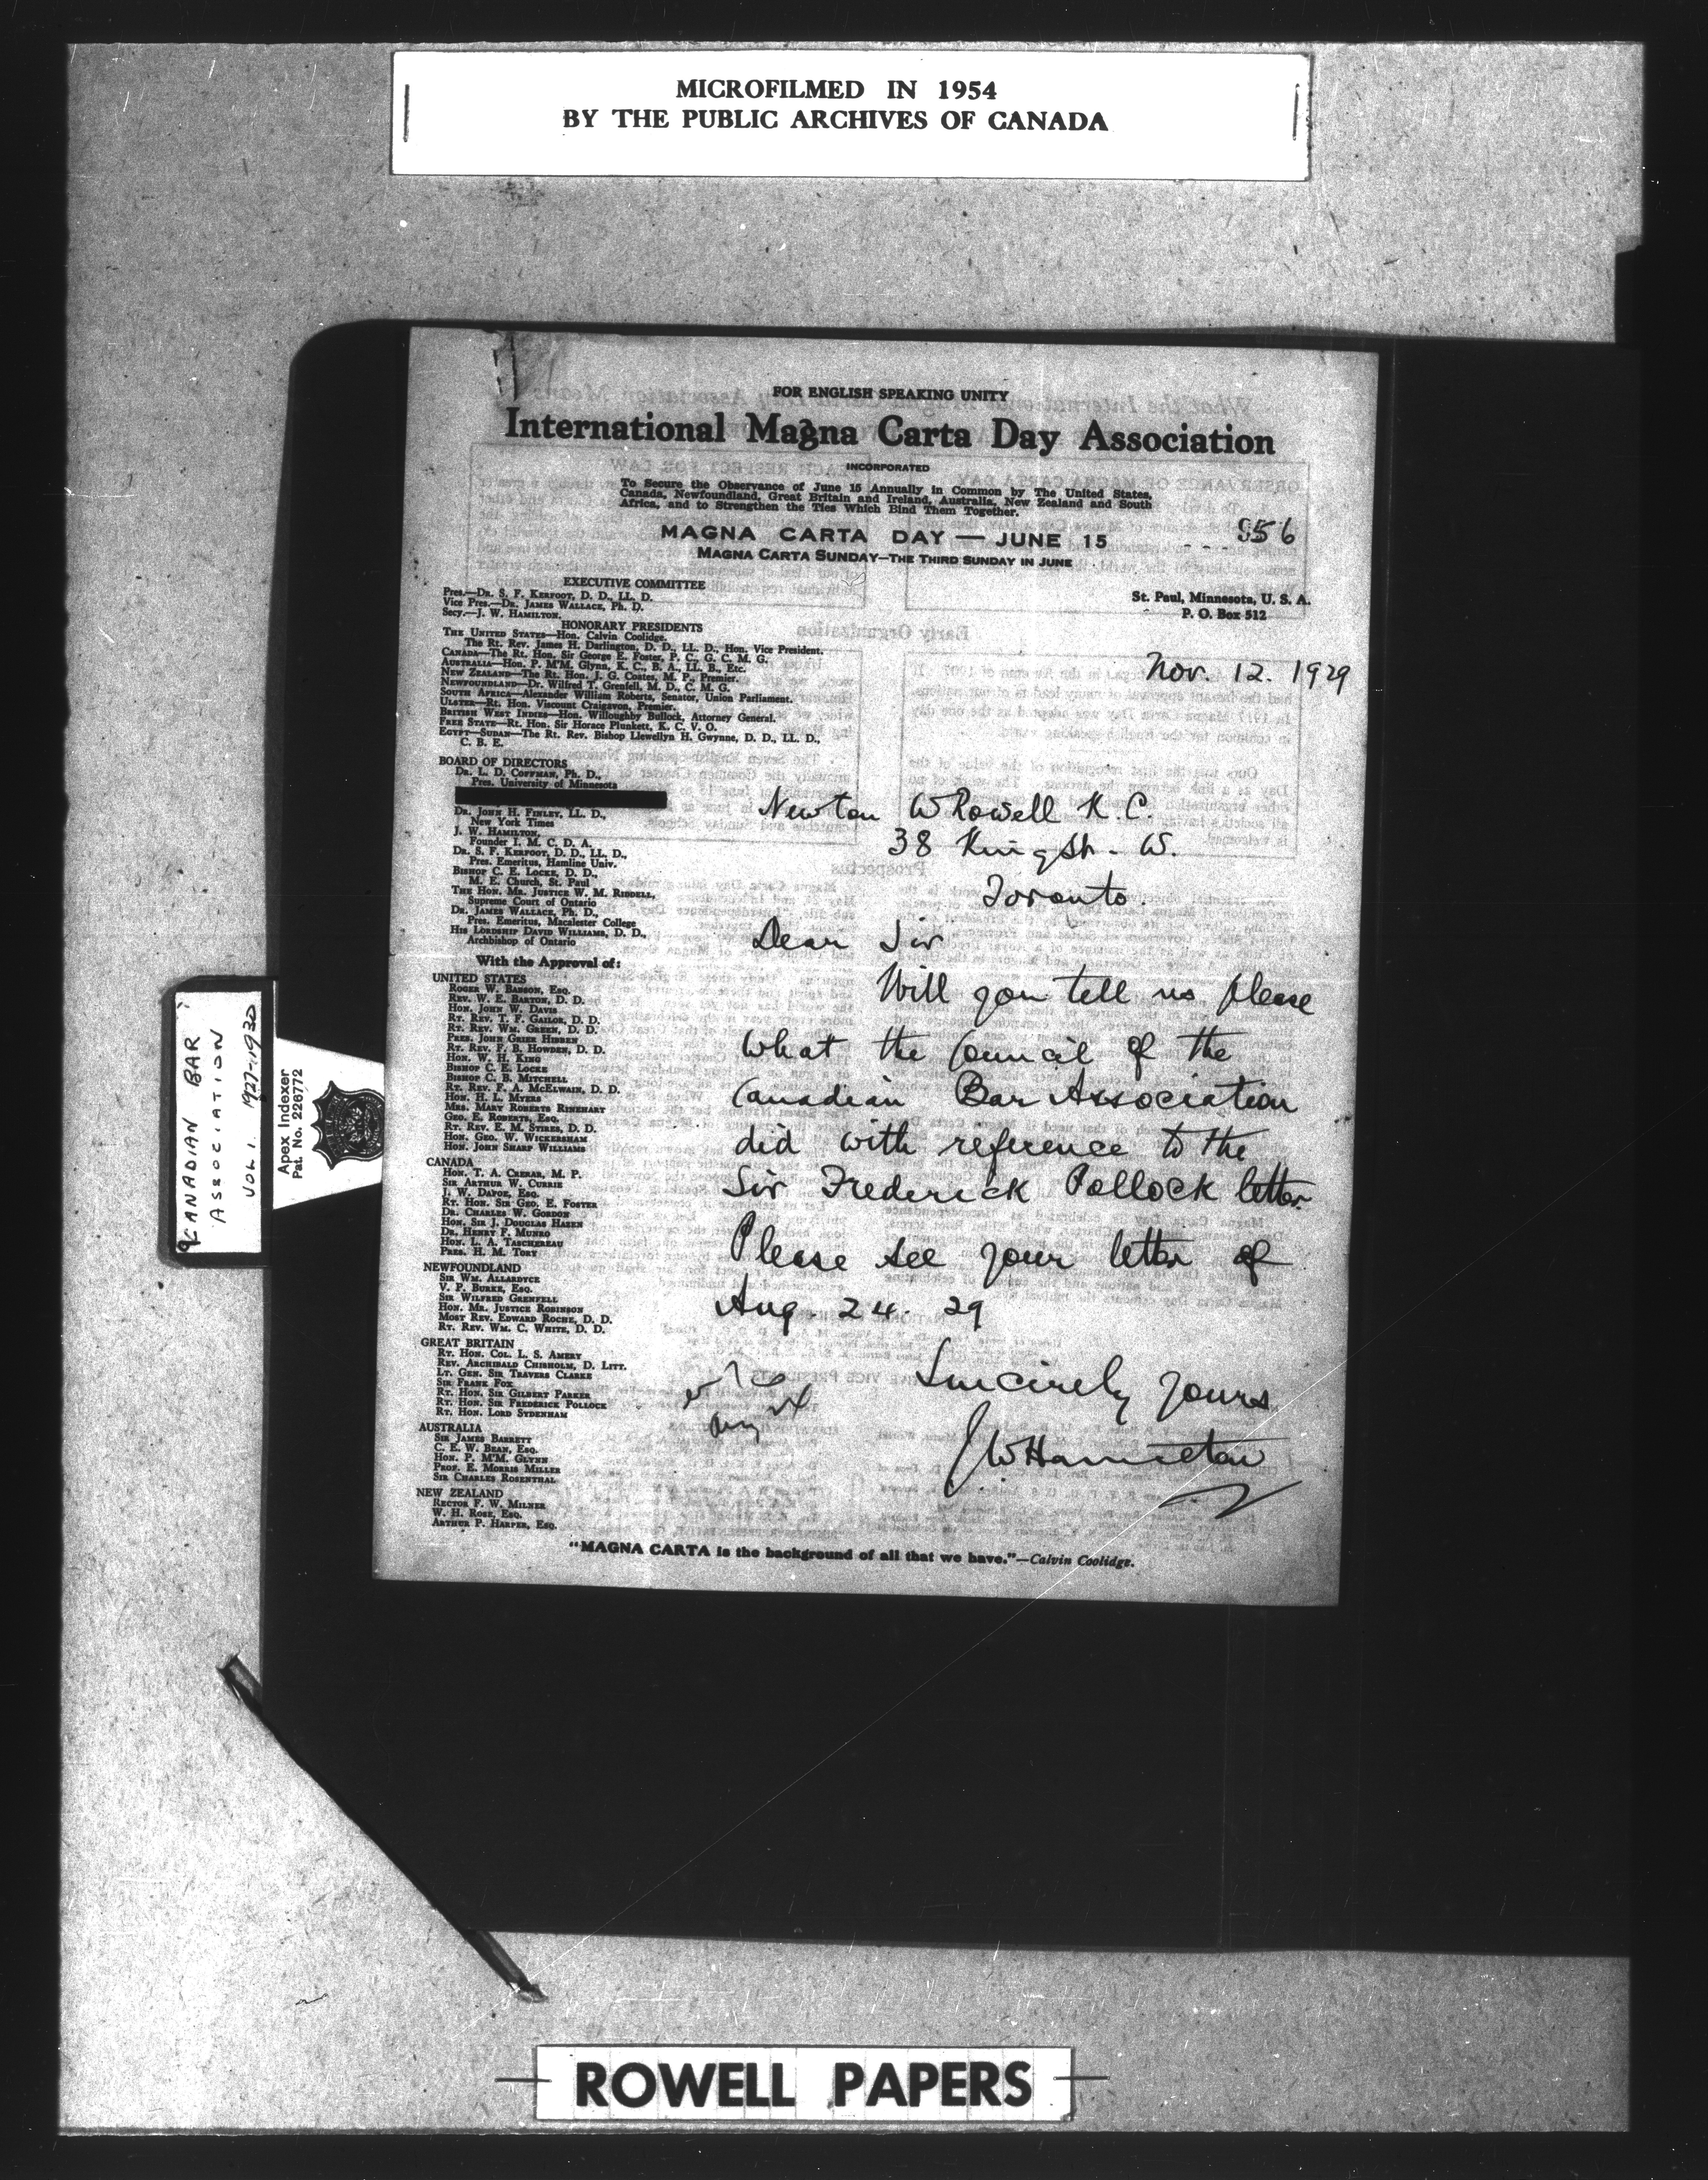 MICROFILMED IN 1954
BY THE PUBLIC ARCHIVES OF CANADA
FOR ENGLISH SPEAKING UNITY
International Magna Carta Day Association
INCORPORATED
To Secure the Observance of June 15 Annually in Common by The United States,
Canada, Newfoundland, Great Britain and Ireland, Australia, New Zealand and South
Africa, and to Strengthen the Ties Which Bind Them Together.
MAGNA CARTA DAY — JUNE 15
956
MAGNA CARTA SUNDAY—THE THIRD SUNDAY IN JUNE
St. Paul, Minnesota, U. S. A.
P. O. Box 512
EXECUTIVE COMMITTEE
Pres.—Dr. S. F. Kerfoot, D. D., LL. D.
Vice Pres.—Dr. James Wallace, Ph. D.
Secy.—J. W. Hamilton.
HONORARY PRESIDENTS
The United States—Hon. Calvin Coolidge.
The Rt. Rev. James H. Darlington, D. D., LL. D., Hon. Vice President.
Canada—The Rt. Hon. Sir George E. Foster, P. C., G. C. M. G.
Australia—Hon. P. M'M. Glynn, K. C., B. A., LL. B., Etc.
New Zealand—The Rt. Hon. J. G. Coates, M. P., Premier.
Newfoundland—Dr. Wilfred T. Grenfell, M. D., C. M. G.
South Africa—Alexander William Roberts, Senator, Union Parliament.
Ulster—Rt. Hon. Viscount Craigavon, Premier.
British West Indies—Hon. Willoughby Bullock, Attorney General.
Free State—Rt. Hon. Sir Horace Plunkett, K. C. V. O.
Egypt—Sudan—The Rt. Rev. Bishop Llewellyn H. Gwynne, D. D., LL. D.,
C. B. E.
BOARD OF DIRECTORS
Dr. L. D. Coffman, Ph. D.,
Pres. University of Minnesota
Dr. John H. Finley, LL. D.,
New York Times
J. W. Hamilton,
Founder I. M. C. D. A.
Dr. S. F. Kerfoot, D. D., LL. D.,
Pres. Emeritus, Hamline Univ.
Bishop C. E. Locke, D. D.,
M. E. Church, St. Paul
The Hon. Mr. Justice W. M. Riddell,
Supreme Court of Ontario
Dr. James Wallace, Ph. D.,
Pres. Emeritus, Macalester College
His Lordship David Williams, D. D.,
Archbishop of Ontario
With the Approval of:
UNITED STATES
Roger W. Babson, Esq.
Rev. W. E. Barton, D. D.
Hon. John W. Davis
Rt. Rev. T. F. Gailor, D. D.
Rt. Rev. Wm. Green, D. D.
Pres. John Grier Hibben
Rt. Rev. F. B. Howden, D. D.
Hon. W. H. King
Bishop C. E. Locke
Bishop C. B. Mitchell
Rt. Rev. F. A. McElwain, D. D.
Hon. H. L. Myers
Mrs. Mary Roberts Rinehart
Geo. E. Roberts, Esq.
Rt. Rev. E. M. Stires, D. D.
Hon. Geo. W. Wickersham
Hon. John Sharp Williams
CANADA
Hon. T. A. Crerar, M. P.
Sir Arthur W. Currie
J. W. Dafoe, Esq.
Rt. Hon. Sir Geo. E. Foster
Dr. Charles W. Gordon
Hon. Sir J. Douglas Hazen
Dr. Henry F. Munro
Hon. L. A. Taschereau
Pres. H. M. Tory
NEWFOUNDLAND
Sir Wm. Allardyce
V. P. Burke, Esq.
Sir Wilfred Grenfell
Hon. Mr. Justice Robinson
Most Rev. Edward Roche, D. D.
Rt. Rev. Wm. C. White, D. D.
GREAT BRITAIN
Rt. Hon. Col. L. S. Amery
Rev. Archibald Chisholm, D. Litt.
Lt. Gen. Sir Travers Clarke
Sir Frank Fox
Rt. Hon. Sir Gilbert Parker
Rt. Hon. Sir Frederick Pollock
Rt. Hon. Lord Sydenham
AUSTRALIA
Sir James Barrett
C. E. W. Bean, Esq.
Hon. P. M'M. Glynn
Prof. E. Morris Miller
Sir Charles Rosenthal
NEW ZEALAND
Rector F. W. Milner
W. H. Rose, Esq.
Arthur P. Harper, Esq.
Nov. 12. 1929
Newton W Rowell K. C.
38 King St. W.
Toronto.
Dear Sir
Will you tell us please
what the Council of the
Canadian Bar Association
did with reference to the
Sir Frederick Pollock letter.
Please see your letter of
Aug. 24. 29
Sincerely yours
J W Hamilton
"MAGNA CARTA is the background of all that we have."—Calvin Coolidge.
CANADIAN BAR
ASSOCIATION
VOL 1. 1927-1930
Apex Indexer
Pat. No. 226772
ROWELL PAPERS